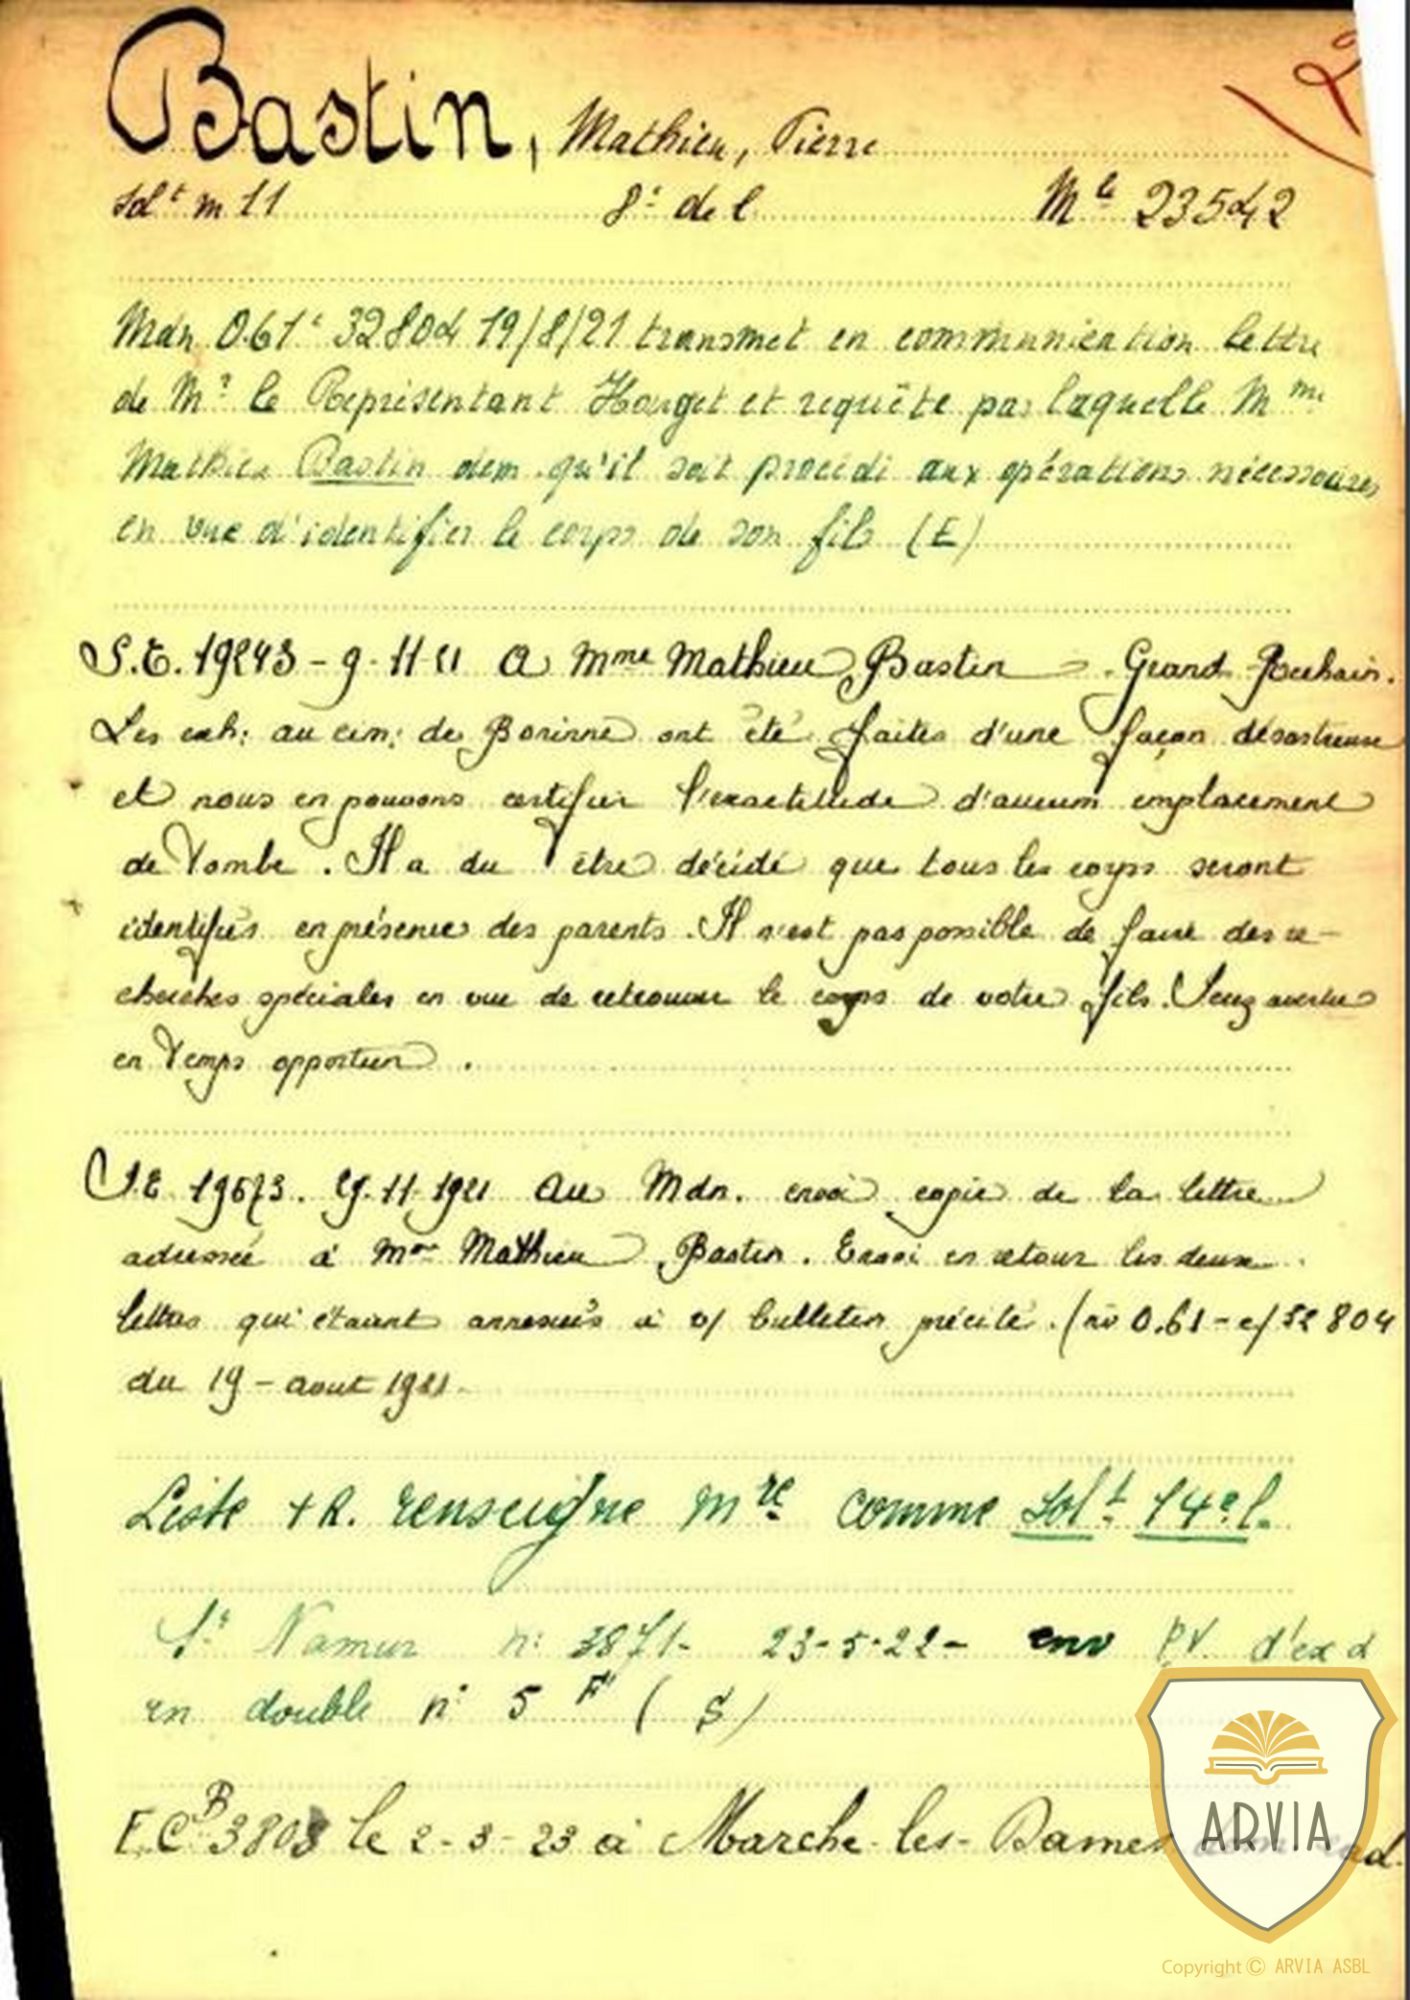 Bastin, Mathieu, Pierre
Solt m 11 8e de l Mle 23542
Mdn 0.61c 32804 19/8/21 transmet en communication lettre
de Mr le Représentant Hanget et requête par laquelle Mme
Mathieu Bastin dem. qu'il soit procédé aux opérations nécessaires
en vue d'identifier le corps de son fils (E)
S.E. 19243 - 9-11-21 A Mme Mathieu Bastin - Grand-Rechain.
Les exh: au cim: de Boninne ont été faites d'une façon désastreuse
et nous en pouvons certifier l'exactitude d'aucun emplacement
de Tombe. Il a du être décidé que tous les corps seront
identifiés en présence des parents. Il n'est pas possible de faire des re-
cherches spéciales en vue de retrouver le corps de votre fils. Serez avertie
en Temps opportun.
S.E 19673. 9.11.1921 Au Mdn. envoi copie de la lettre
adressée à Mme Mathieu Bastin. Envoi en retour les deux
lettres qui étaient annexées à v/ bulletin précité. (no 0.61-c/32804
du 19-aout 1921.
Liste +R. renseigne mre comme Solt 14e l.
Sr Namur n: 3871- 23-5-22- env P.V. d'ex d
en double n° 5 F (S)
E.C.B 3803 le 2-3-23 à Marche-les-Dames
ARVIA
Copyright © ARVIA ASBL